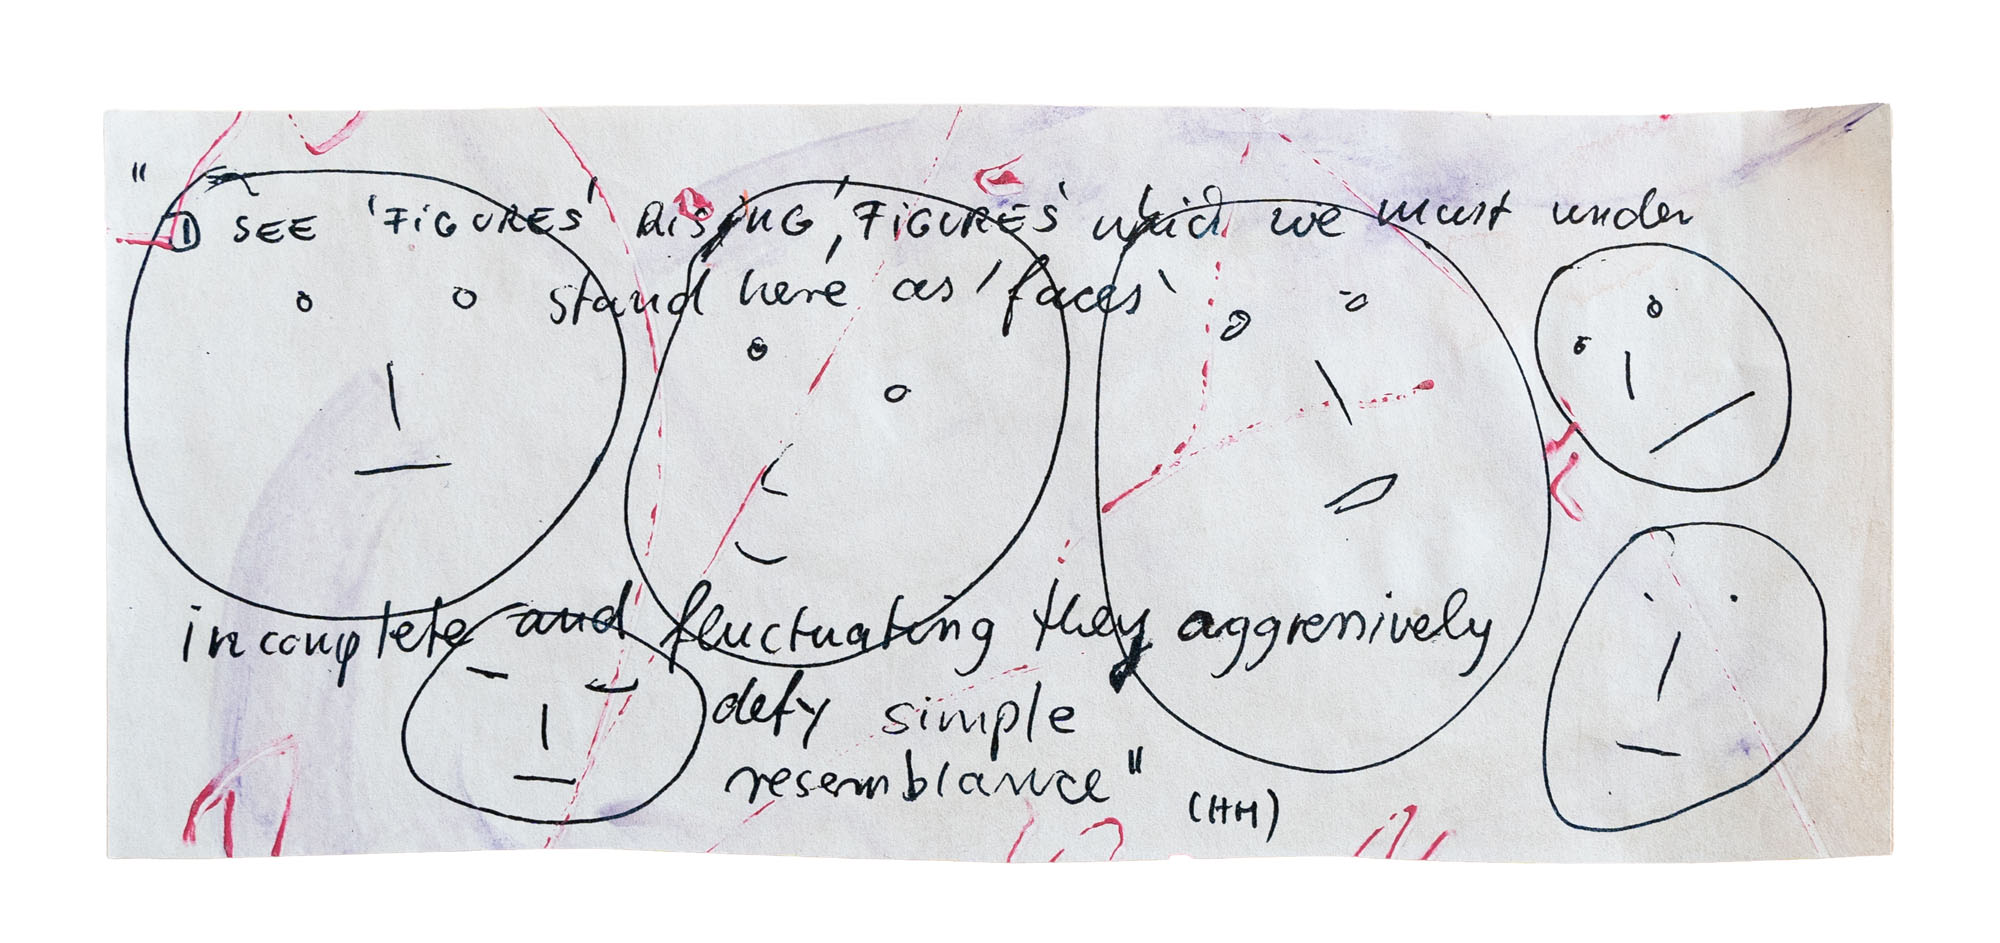 " I SEE 'FiGURES' RiSiNG, 'FiGURES' which we must under
stand here as 'faces'
incomplete and fluctuating they aggressively
defy simple
resemblance"
(HM)